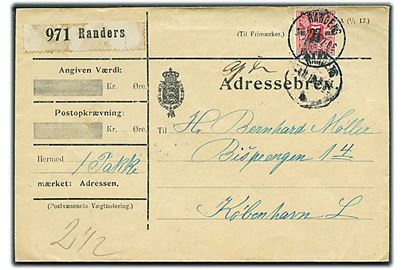 971 Randers
(Til Frimærker.)
(1/1 17.)
RANDERS
Angiven Værdi:
Kr. Øre.
Postopkrævning:
Kr. Øre.
Hermed 1 Pakke
mærket: Adressen.
(Postvæsenets Vægtnotering.)
2 1/2
Adressebrev.
Til Hr. Bernhard Møller
Bispeengen 14
København L